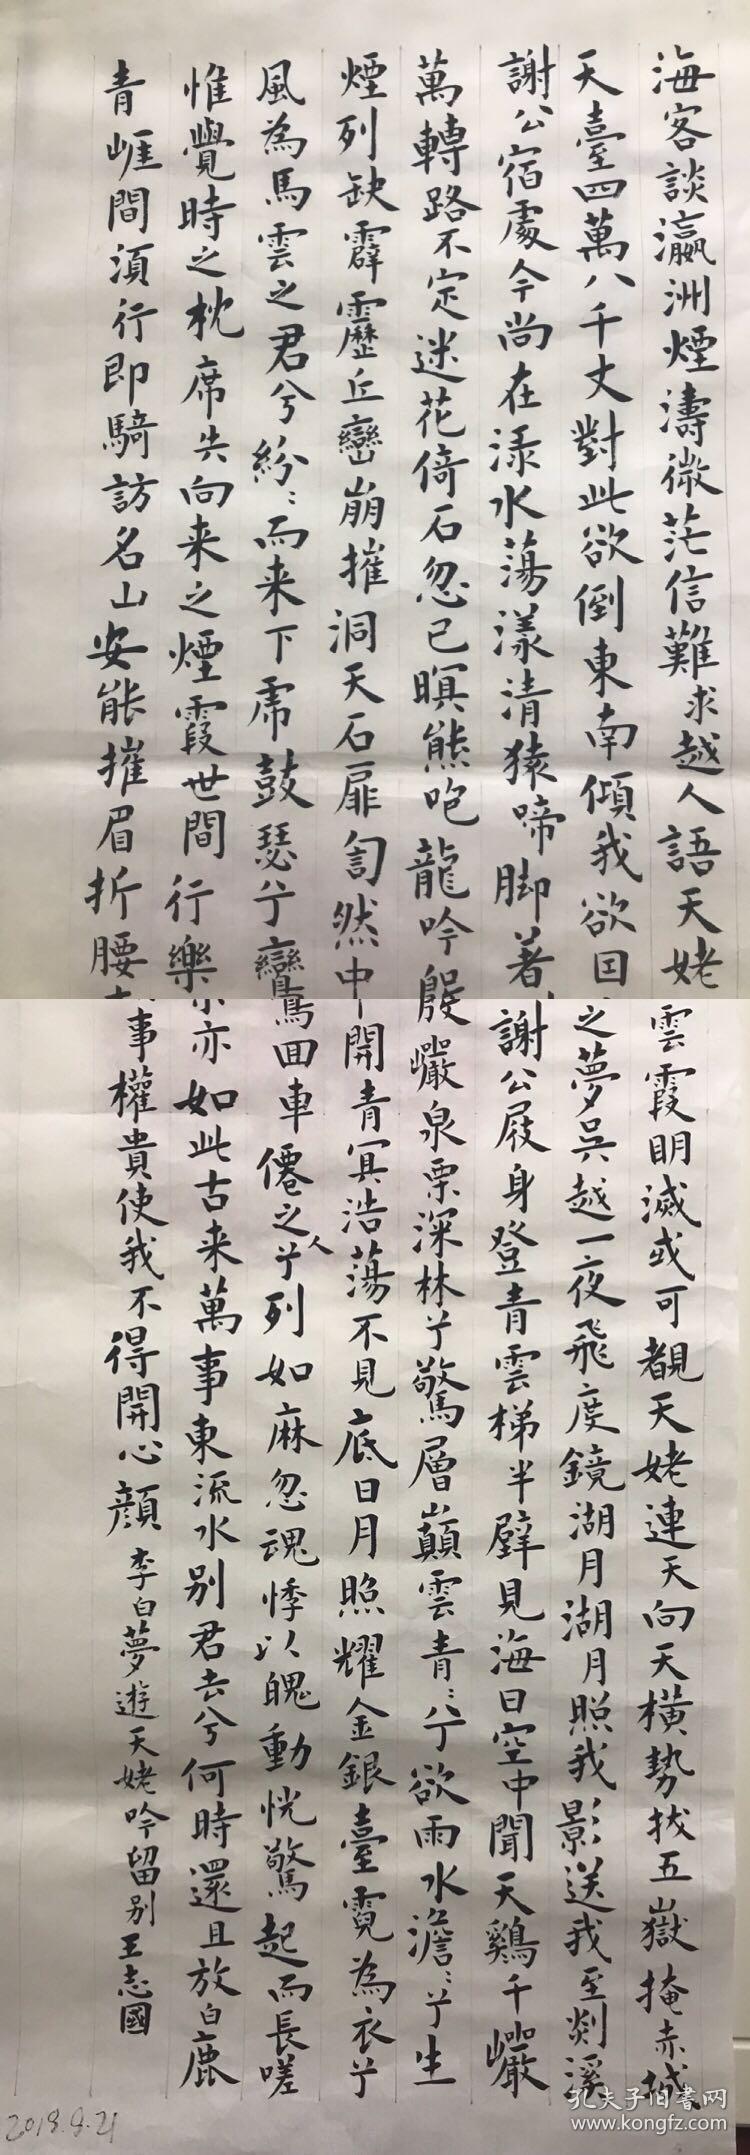 海客談瀛洲煙濤微茫信難求越人語天姥雲霞明滅或可覩天姥連天向天橫勢拔五嶽掩赤城
天臺四萬八千丈對此欲倒東南傾我欲因之夢吳越一夜飛度鏡湖月湖月照我影送我至剡溪
謝公宿處今尚在渌水蕩漾清猿啼脚著謝公屐身登青雲梯半壁見海日空中聞天鷄千巖
萬轉路不定迷花倚石忽已暝熊咆龍吟殷巖泉栗深林兮驚層巔雲青〻兮欲雨水澹〻兮生
煙列缺霹靂丘巒崩摧洞天石扉訇然中開青冥浩蕩不見底日月照耀金銀臺霓為衣兮
風為馬雲之君兮紛〻而来下虎鼓瑟兮鸞回車僊之人兮列如麻忽魂悸以魄動恍驚起而長嗟
惟覺時之枕席失向来之煙霞世間行樂亦如此古来萬事東流水別君去兮何時還且放白鹿
青崕間湏行即騎訪名山安能摧眉折腰事權貴使我不得開心顔 李白夢遊天姥吟留别 王志國
2018.8.21
孔夫子旧書网
www.kongfz.com